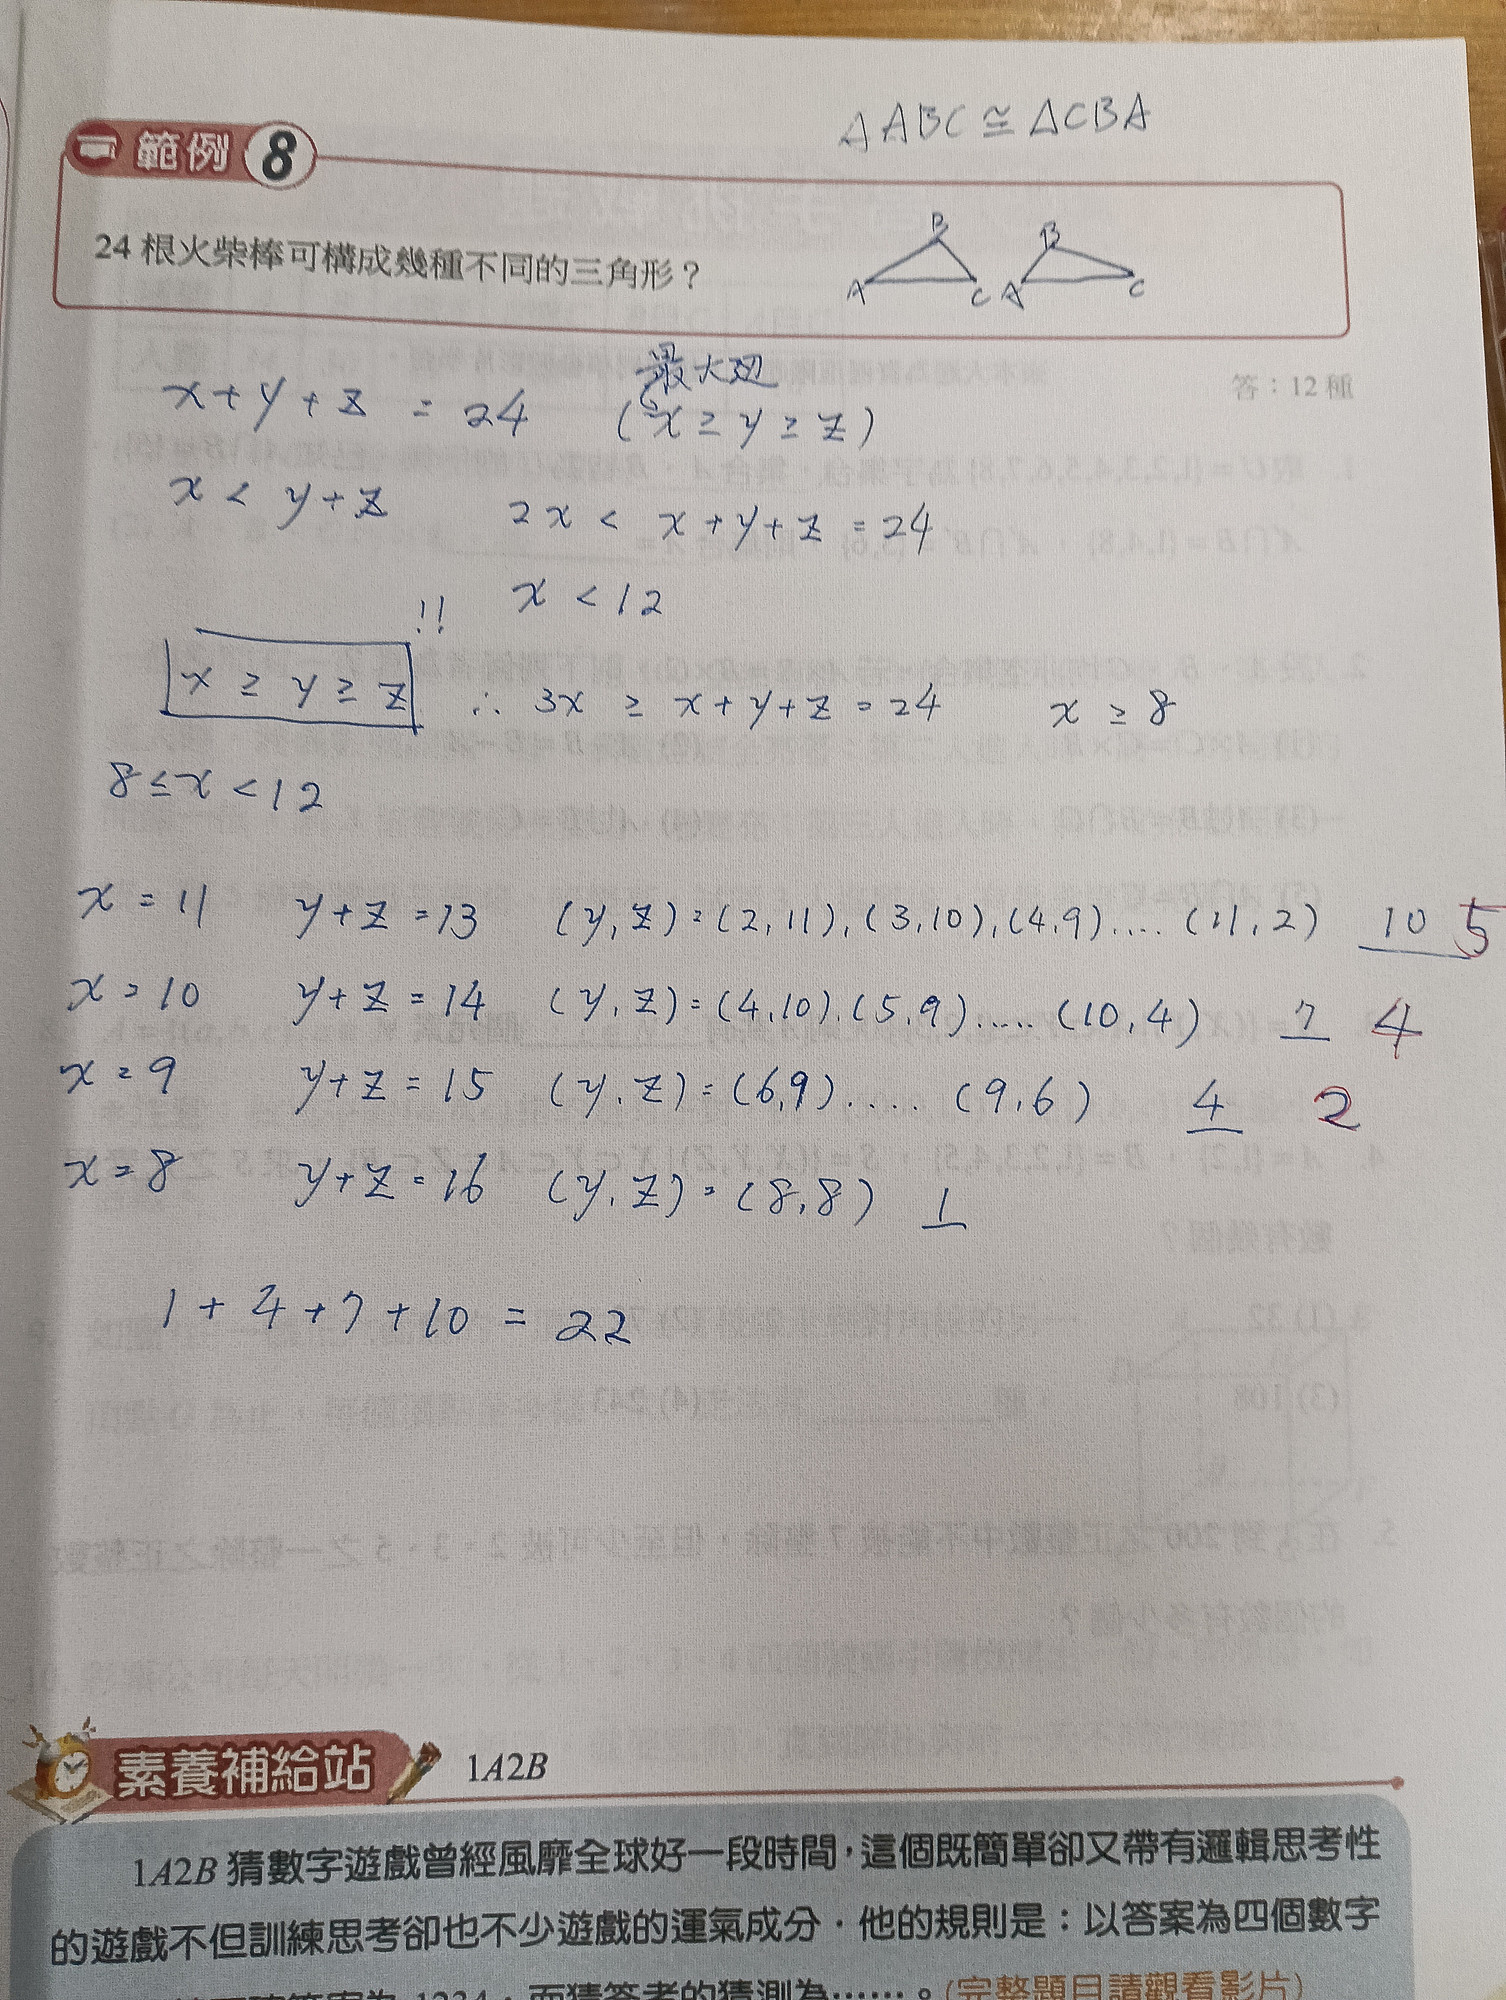 △ABC ≅ △CBA
範例 8
24 根火柴棒可構成幾種不同的三角形？
B B
A C A C
答：12 種
最大邊
x + y + z = 24 (x ≥ y ≥ z)
x < y + z 2x < x + y + z = 24
x < 12
!!
x ≥ y ≥ z ∴ 3x ≥ x + y + z = 24 x ≥ 8
8 ≤ x < 12
x = 11 y + z = 13 (y, z) = (2, 11), (3, 10), (4, 9) .... (11, 2) 10 5
x = 10 y + z = 14 (y, z) = (4, 10), (5, 9) ..... (10, 4) 7 4
x = 9 y + z = 15 (y, z) = (6, 9) .... (9, 6) 4 2
x = 8 y + z = 16 (y, z) = (8, 8) 1
1 + 4 + 7 + 10 = 22
素養補給站 1A2B
1A2B 猜數字遊戲曾經風靡全球好一段時間，這個既簡單卻又帶有邏輯思考性
的遊戲不但訓練思考卻也不少遊戲的運氣成分．他的規則是：以答案為四個數字
1234，而猜答者的猜測為……。(完整題目請觀看影片)